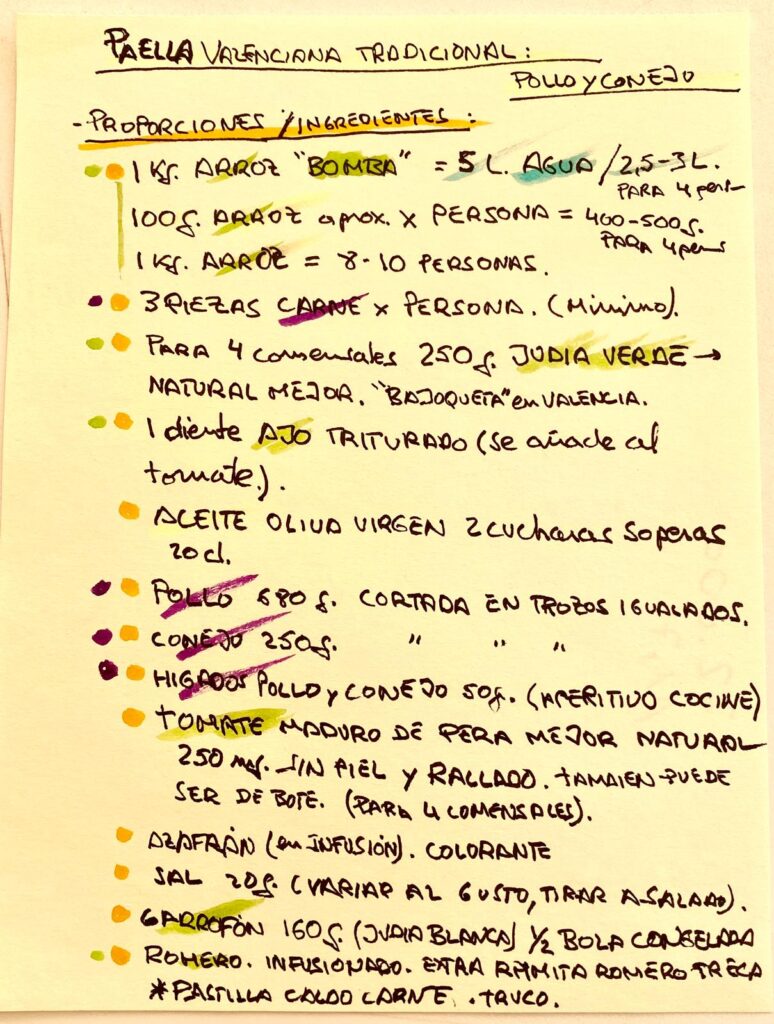 PAELLA VALENCIANA TRADICIONAL:
POLLO Y CONEJO
- PROPORCIONES / INGREDIENTES:
1 KG. ARROZ "BOMBA" = 5 L. AGUA / 2,5-3 L.
PARA 4 pers
100g. ARROZ aprox. x PERSONA = 400-500g.
PARA 4 pers
1 KG. ARROZ = 8-10 PERSONAS.
3 PIEZAS CARNE x PERSONA. (Minimo).
PARA 4 comensales 250g. JUDIA VERDE →
NATURAL MEJOR. "BAJOQUETA" en VALENCIA.
1 diente AJO TRITURADO (se añade al
tomate.).
ACEITE OLIVA VIRGEN 2 cucharas soperas
20 cl.
POLLO 680 g. CORTADA EN TROZOS IGUALADOS.
CONEJO 250g. " " "
HIGADOS POLLO y CONEJO 50g. (APERITIVO COCINE)
TOMATE MADURO DE PERA MEJOR NATURAL
250 SIN PIEL Y RALLADO. TAMBIEN PUEDE
SER DE BOTE. (PARA 4 COMENSALES).
AZAFRÁN (en INFUSIÓN). COLORANTE
SAL 20g. (VARIAR AL GUSTO, TIRAR A SALADO).
GARROFÓN 160g. (JUDIA BLANCA) 1/2 BOLA CONGELADA
ROMERO. INFUSIONADO. EXTRA RAMITA ROMERO
*PASTILLA CALDO CARNE. TRUCO.